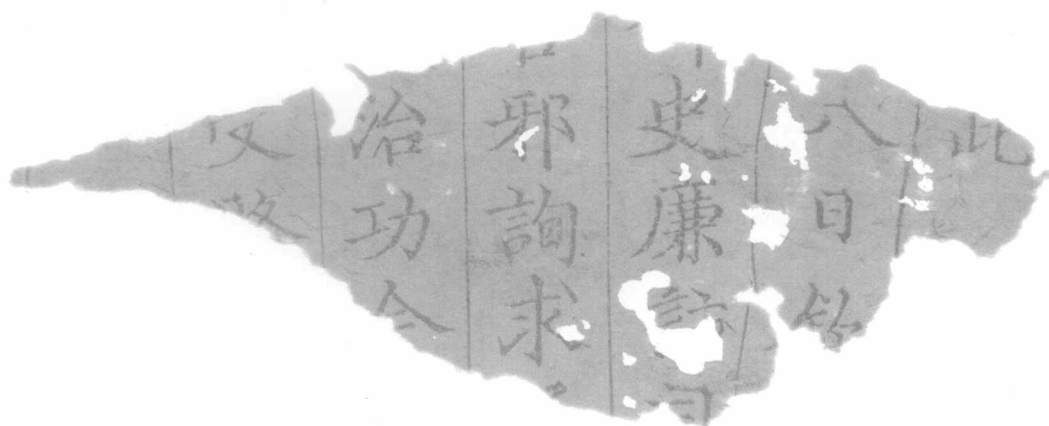 此
八日
史廉訪司
邪詢求
治功今
文